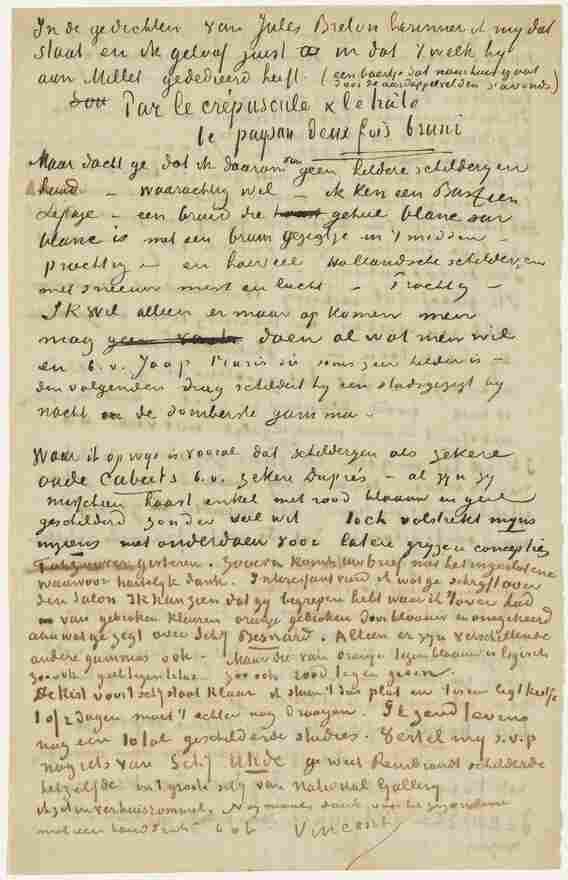 In de gedichten van Jules Breton herinner ik my dat
staat en ik geloof juist in dat 't welk hy
aan Millet gededieerd heeft. (een boertje dat naar huis gaat
door de aardappelvelden 's avonds)
Par le crépuscule & le hâle
le paysan deux fois bruni
Maar dacht ge dat ik daarom van geen heldere schilderyen
houd – waarachtig wel – ik ken een Bastien
Lepage – een bruid die geheel blanc sur
blanc is met een bruin gezigtje in 't midden –
prachtig – en hoeveel Hollandsche schilderyen
met sneeuw mist en lucht – Prachtig –
Ik wil alleen er maar op komen men
mag doen al wat men wil
en b.v. Jaap Maris die soms zoo helder is –
den volgenden dag schildert hy een stadsgezigt by
nacht in de somberste gamma.
Waar ik op wys is vooral dat schilderyen als zekere
oude Cabats b.v. zekere Duprés – al zyn zy
misschien haast enkel met rood blaauw en geel
geschilderd zonder veel wit toch volstrekt
myns niet onderdoen voor latere gryzer concepties
gisteren. Zooeven komt uw brief met het ingeslotene
waarvoor hartelyk dank. Interessant vind ik wat ge schryft over
den Salon Ik kan zien dat gy begrepen hebt waar ik 't over had
van gebroken kleuren oranje gebroken door blaauw en omgekeerd
aan wat ge zegt over Schy Besnard. Alleen er zyn verschillende
andere gammas ook. Maar die van oranje tegen blaauw is logisch
zoo ook geel tegen lila. zoo ook rood tegen groen.
De kist voor 't schy staat klaar
10/2 dagen moet 't echter nog droogen. Ik zend tevens
nog een 10tal geschilderde studies. Vertel my s.v.p
nog iets van Schy Uhde ge weet Rembrandt schilderde
hetzelfde in 't groote schy van National Gallery
ik zit in verhuisrommel. Nogmaals dank voor het gezondene
met een handdruk b.à.t. Vincent